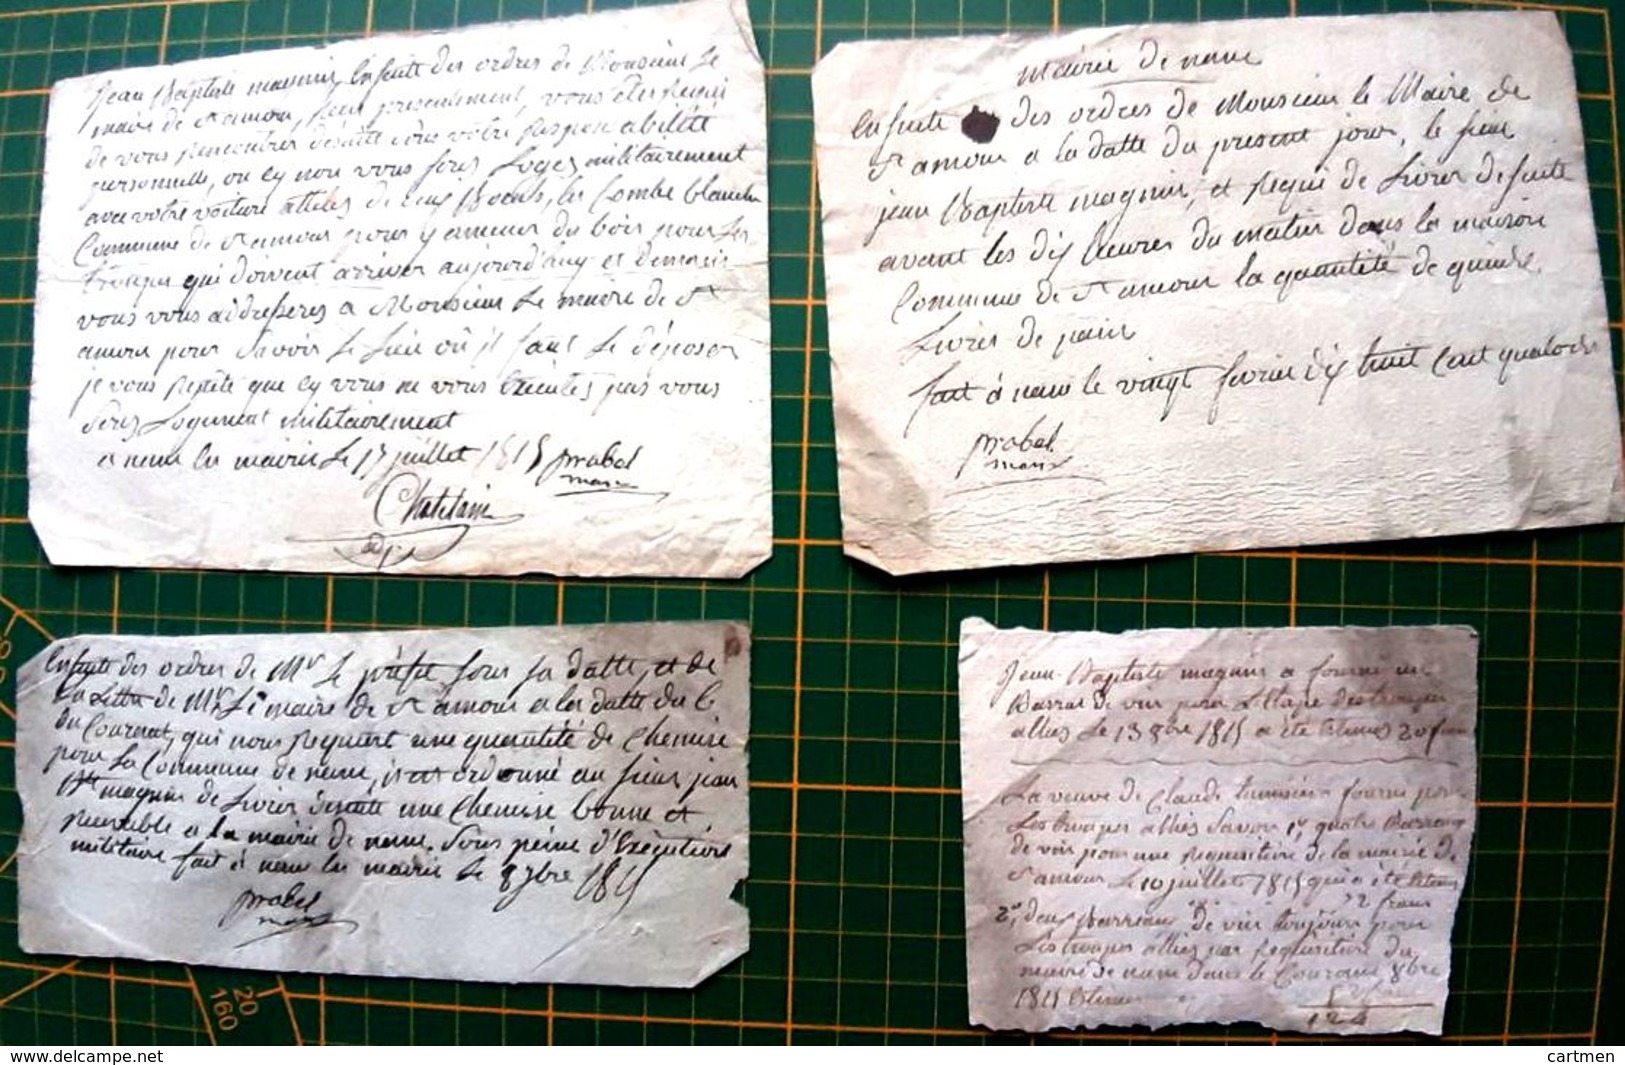 Jean Baptiste magnin, Ensuite des ordres de Monsieur le
maire de st amour, sieur presentement, vous etes requi
de vous rencontrer desuite sous votre responsabilité
personnelle, ou sy non vous serez Logez militairement
avec votre voiture atteles de cinq Boeufs, la Combe blanche
Commune de st amour pour y amener du bois pour les
troupes qui doivent arriver aujourd'huy et Demain
vous vous addresseres a Monsieur le maire de st
amour pour Savoir le Lieu où il faut le déposer
je vous repete que sy vous ne vous Executes pas vous
Serez Logement militairement
a nanc la mairie le 17 juillet 1815 prabel
maire
Chatelain
adjt
mairie de nanc
Ensuite des ordres de Monsieur le Maire de
st amour a la datte du present jour, le sieur
jean Baptiste magnin, et requi de Livrer desuite
avant les dix heures du matin dans la maison
Commune de st amour la quantité de quinze
Livres de pain
fait à nanc le vingt fevrier dix huit cent quatorze
prabel
maire
Ensuite des ordres de Mr le préfet sous sa datte, et de
la Lettre de Mr Le maire de st amour a la datte du 6
du Courant, qui nous requiert une quantité de Chemise
pour la Commune de nanc, il est ordonné au sieur jean
Bte magnin de Livrer desuite une Chemise bonne et
recevable a la mairie de nanc. Sous peine d'Exécution
militaire fait à nanc la mairie le 8 7bre 1815
prabel
maire
Jean Baptiste magnin a fourni un
Barral de vin pour l'Etape des troupes
alliés Le 13 8bre 1815 a été Estimes 20 franc
La veuve de Claude fourni pour
Les troupes alliés Savoir 1er quatre Barraux
de vin pour une requisition de la mairie de
st amour Le 10 juillet 1815 qui a été Estimes
72 francs
2e, deux Barreaux de vin toujours pour
Les troupes alliés par requisition du
maire de nanc dans le Courant 8bre
1815 Estimes
delcampe.net
cartmen
20
160